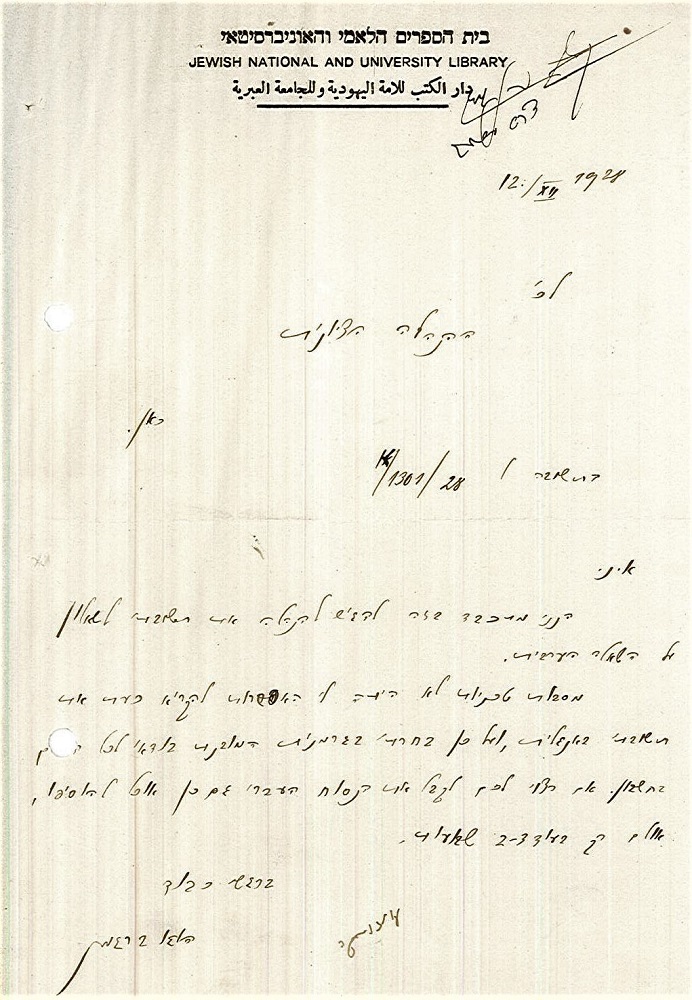 בית הספרים הלאמי והאוניברסיטאי
JEWISH NATIONAL AND UNIVERSITY LIBRARY
دار الكتب للامة اليهودية وللجامعة العبرية
12./XII 1928
לכ'
ההנהלה הציונית
כאן.
בתשובה ל 1301/28
א.נ.
הנני מתכבד בזה להגיש להנהלה את תשובתי לשאלון
על השאלה הערבית.
מסבות טכניות לא היתה לי האפשרות לקרא כעת את
תשובתי באנגלית, ועל כן בחרתי בגרמנית המובנת בודאי לכל
בחשבון. אם רצוי לכם לקבל את הנסוח העברי גם כן אוכל להוסיפו,
אולם רק בעוד 2-3 שבועות.
ברגשי כבוד
הוגו ברגמן